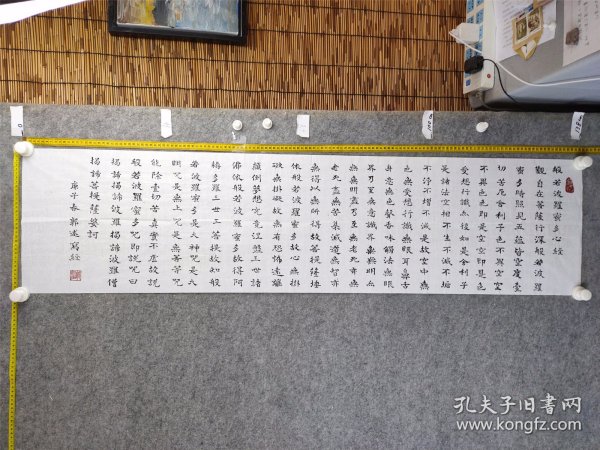 般若波羅蜜多心經
觀自在菩薩行深般若波羅
蜜多時照見五蘊皆空度壹
切苦厄舍利子色不異空空
不異色色即是空空即是色
受想行識亦復如是舍利子
是諸法空相不生不滅不垢
不淨不增不減是故空中無
色無受想行識無眼耳鼻舌
身意無色聲香味觸法無眼
界乃至無意識界無無明亦
無無明盡乃至無老死亦無
老死盡無苦集滅道無智亦
無得以無所得故菩提薩埵
依般若波羅蜜多故心無掛
礙無掛礙故無有恐怖遠離
顛倒夢想究竟涅盤三世諸
佛依般若波羅蜜多故得阿
耨多羅三藐三菩提故知般
若波羅蜜多是大神咒是大
明咒是無上咒是無等等咒
能除壹切苦真實不虛故說
般若波羅蜜多咒即說咒曰
揭諦揭諦波羅揭諦波羅僧
揭諦菩提薩婆訶
庚子春郭述寫經
孔夫子旧书网
www.kongfz.com